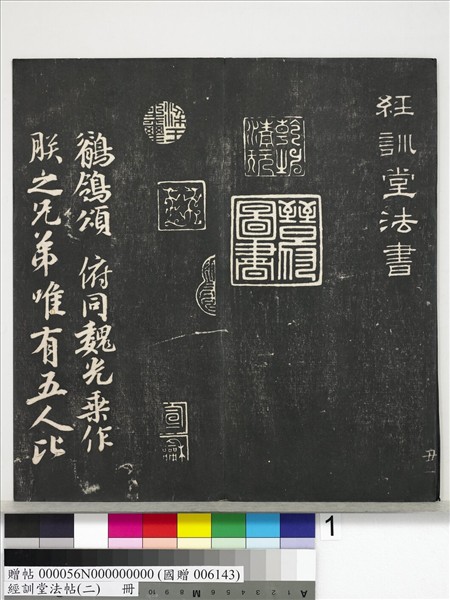 經訓堂法書
丑
晉府圖書
鶺鴒頌 俯同魏光乘作
朕之兄弟唯有五人比
1
贈帖 000056N000000000 (國贈 006143)
經訓堂法帖(二) 冊